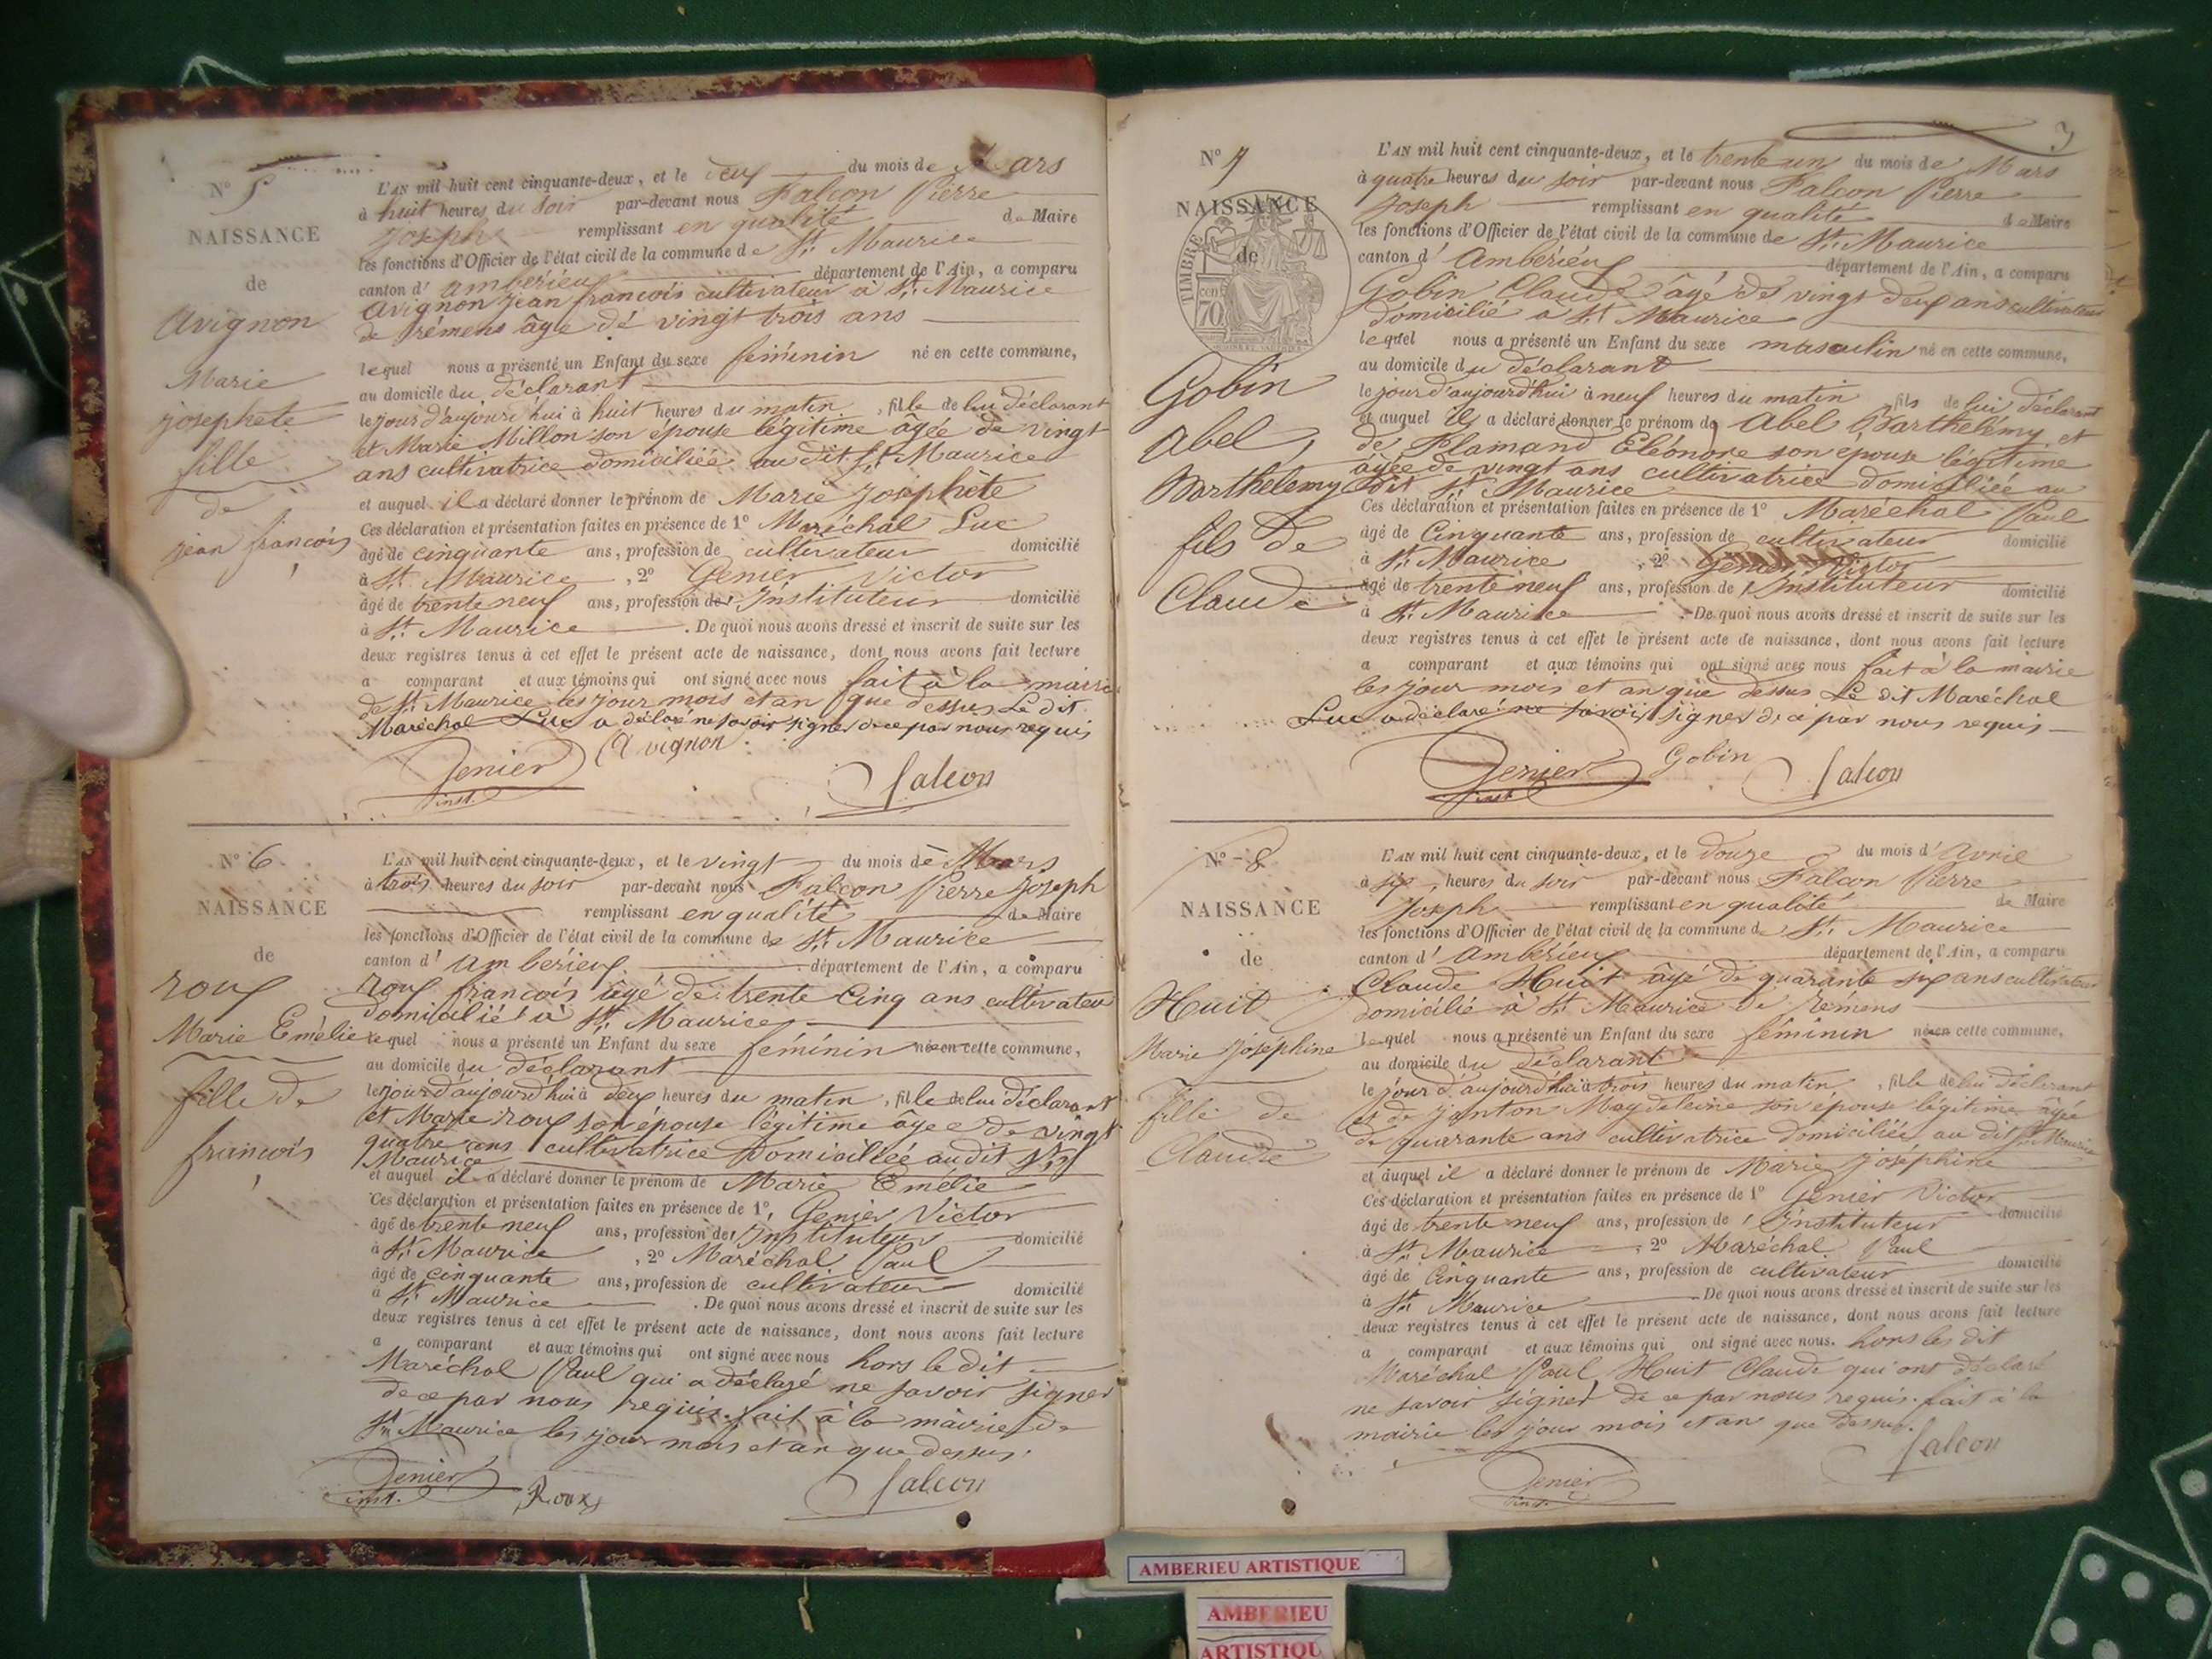 N° 5
NAISSANCE
de
Avignon
Marie
Josephete
fille
de
jean françois
L'AN mil huit cent cinquante-deux, et le deux du mois de Mars
à huit heures du soir par-devant nous Falcon Pierre
Joseph remplissant en qualité de Maire
les fonctions d'Officier de l'état civil de la commune de St. Maurice
canton d' ambérieux département de l'Ain, a comparu
Avignon Jean françois cultivateur à St. Maurice
de rémens âgé de vingt trois ans
lequel nous a présenté un Enfant du sexe féminin né en cette commune,
au domicile du déclarant
le jour d'aujourd'hui à huit heures du matin, fille de lui déclarant
et Marie Millon son épouse légitime âgée de vingt
ans cultivatrice domiciliée au dit St. Maurice
et auquel il a déclaré donner le prénom de Marie Joséphète
Ces déclaration et présentation faites en présence de 1° Maréchal Luc
âgé de cinquante ans, profession de cultivateur domicilié
à St. Maurice, 2° Genier Victor
âgé de trente neuf ans, profession de Instituteur domicilié
à St. Maurice. De quoi nous avons dressé et inscrit de suite sur les
deux registres tenus à cet effet le présent acte de naissance, dont nous avons fait lecture
a comparant et aux témoins qui ont signé avec nous fait à la mairie
de St. Maurice les jour mois et an que dessus Le dit
Maréchal Luc a déclaré ne savoir signer de ce par nous requis
Genier Avignon
inst. falcon
N° 6
NAISSANCE
de
roux
Marie Emèlie
fille de
francois
L'AN mil huit cent cinquante-deux, et le vingt du mois de Mars
à trois heures du soir par-devant nous Falcon Pierre Joseph
remplissant en qualité de Maire
les fonctions d'Officier de l'état civil de la commune de St. Maurice
canton d' ambérieux département de l'Ain, a comparu
roux francois âgé de trente Cinq ans cultivateur
domicilié à St. Maurice
lequel nous a présenté un Enfant du sexe féminin né en cette commune,
au domicile du déclarant
le jour d'aujourd'hui à deux heures du matin, fille de lui déclarant
et Marie roux son épouse légitime âgée de vingt
quatre ans cultivatrice Domiciliée au dit St.
Maurice
et auquel il a déclaré donner le prénom de Marie Emélie
Ces déclaration et présentation faites en présence de 1°, Genier Victor
âgé de trente neuf ans, profession de Instituteur domicilié
à St. Maurice, 2° Maréchal Paul
âgé de cinquante ans, profession de cultivateur domicilié
à St. Maurice. De quoi nous avons dressé et inscrit de suite sur les
deux registres tenus à cet effet le présent acte de naissance, dont nous avons fait lecture
a comparant et aux témoins qui ont signé avec nous hors le dit
Maréchal Paul qui a déclaré ne savoir signer
de ce par nous requis. fait à la mairie de
St. Maurice les jour mois et an que dessus.
Genier
inst. Roux falcon
3
N° 7
NAISSANCE
de
TIMBRE
70 cent
Gobin
Abel,
Barthelemy
fils de
Claude
L'AN mil huit cent cinquante-deux, et le trente un du mois de Mars
à quatre heures du soir par-devant nous Falcon Pierre
Joseph remplissant en qualité de Maire
les fonctions d'Officier de l'état civil de la commune de St. Maurice
canton d' Ambérieux département de l'Ain, a comparu
Gobin Claude âgé de vingt deux ans cultivateur
domicilié à St. Maurice
lequel nous a présenté un Enfant du sexe masculin né en cette commune,
au domicile du déclarant
le jour d'aujourd'hui à neuf heures du matin, fils de lui déclarant
et auquel il a déclaré donner le prénom de Abel Barthélemy et
de Flamand Eléonore son épouse légitime
âgée de vingt ans cultivatrice domiciliée au
dit St. Maurice
Ces déclaration et présentation faites en présence de 1° Maréchal Paul
âgé de Cinquante ans, profession de cultivateur domicilié
à St. Maurice, 2° Genier Victor
âgé de trente neuf ans, profession de Instituteur domicilié
à St. Maurice. De quoi nous avons dressé et inscrit de suite sur les
deux registres tenus à cet effet le présent acte de naissance, dont nous avons fait lecture
a comparant et aux témoins qui ont signé avec nous fait à la mairie
les jour mois et an que dessus Le dit Maréchal
Luc a déclaré ne savoir signer de ce par nous requis
Genier Gobin falcon
inst
N° 8
NAISSANCE
de
Huit
Marie Joséphine
fille de
Claude
L'AN mil huit cent cinquante-deux, et le Douze du mois d' avril
à six heures du soir par-devant nous Falcon Pierre
Joseph remplissant en qualité de Maire
les fonctions d'Officier de l'état civil de la commune de St. Maurice
canton d' Ambérieux département de l'Ain, a comparu
Claude Huit âgé de quarante six ans cultivateur
domicilié à St. Maurice de rémens
lequel nous a présenté un Enfant du sexe féminin né en cette commune,
au domicile du déclarant
le jour d'aujourd'hui à trois heures du matin, fille de lui déclarant
et de Janton Magdeleine son épouse légitime âgée
de quarante ans cultivatrice domiciliée au dit St. Maurice
et auquel il a déclaré donner le prénom de Marie Joséphine
Ces déclaration et présentation faites en présence de 1° Genier Victor
âgé de trente neuf ans, profession de Instituteur domicilié
à St. Maurice, 2° Maréchal Paul
âgé de Cinquante ans, profession de cultivateur domicilié
à St. Maurice. De quoi nous avons dressé et inscrit de suite sur les
deux registres tenus à cet effet le présent acte de naissance, dont nous avons fait lecture
a comparant et aux témoins qui ont signé avec nous. hors les dit
Maréchal Paul, Huit Claude qui ont déclaré
ne savoir signer de ce par nous requis. fait à la
mairie les jour mois et an que dessus.
Genier falcon
inst.
AMBERIEU ARTISTIQUE
AMBERIEU
ARTISTIQU